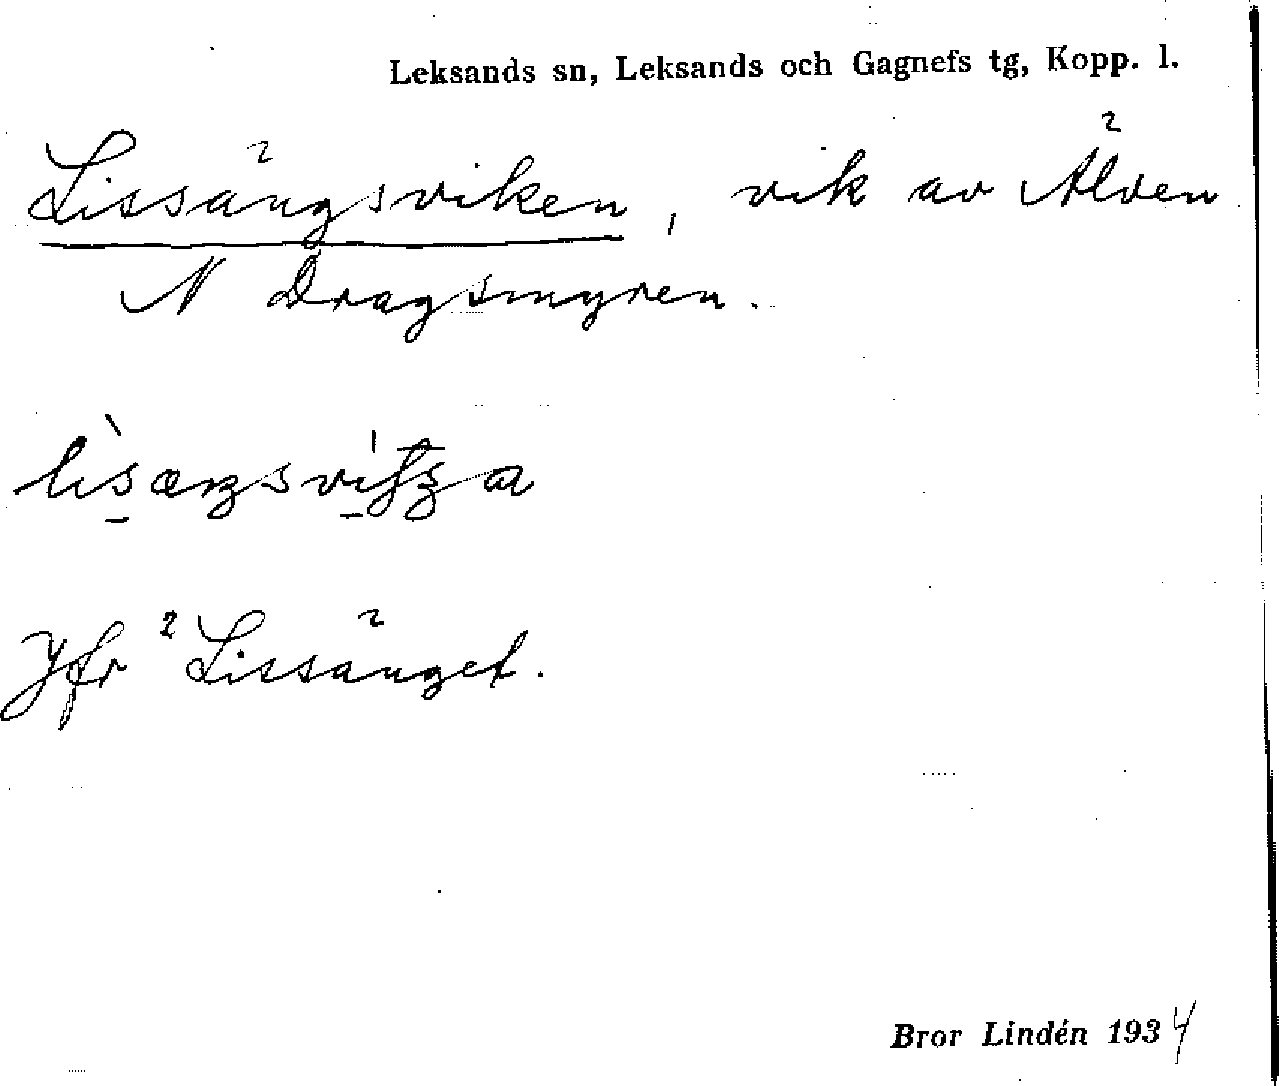 Leksands sn, Leksands och Gagnefs tg, Kopp. l.
Lissängsviken, vik av Älven
N Dragsmyren.
Jfr ² Lissänget.
Bror Lindén 1934